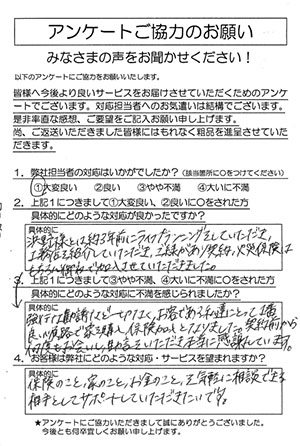 アンケートご協力のお願い
みなさまの声をお聞かせください！
以下のアンケートにご協力をお願いいたします。
皆様へ今後より良いサービスをお届けさせていただくためのアンケ
ートでございます。対応担当者へのお気遣いは結構でございます。
是非率直な感想、ご要望をご記入お願い申し上げます。
尚、ご返送いただきました皆様にはもれなく粗品を進呈させていた
だきます。
1．弊社担当者の対応はいかがでしたか？（該当箇所に○をつけてください）
①大変良い　②良い　③やや不満　④大いに不満
2．上記１につきまして①大変良い、②良いに○をされた方
具体的にどのような対応が良かったですか？
具体的に
様とは約3年前にライフプランニングをしていただき、
工務店を紹介していただき、ご縁があり契約、火災保険は
加入させていただきました。
3．上記１につきまして③やや不満、④大いに不満に○をされた方
具体的にどのような対応に不満を感じられましたか？
具体的に
お客である私達にとって1番
良い成路で家を購入、保険加入となりました。契約前から
本当に感謝しています。
4．お客様は弊社にどのような対応・サービスを望まれますか？
具体的に
保険のこと、家のこと、お金のこと、気軽に相談できる
相手としてサポートしていただきたいです。
★アンケートにご協力いただきまして誠にありがとうございました。
今後とも何卒宜しくお願い申し上げます。